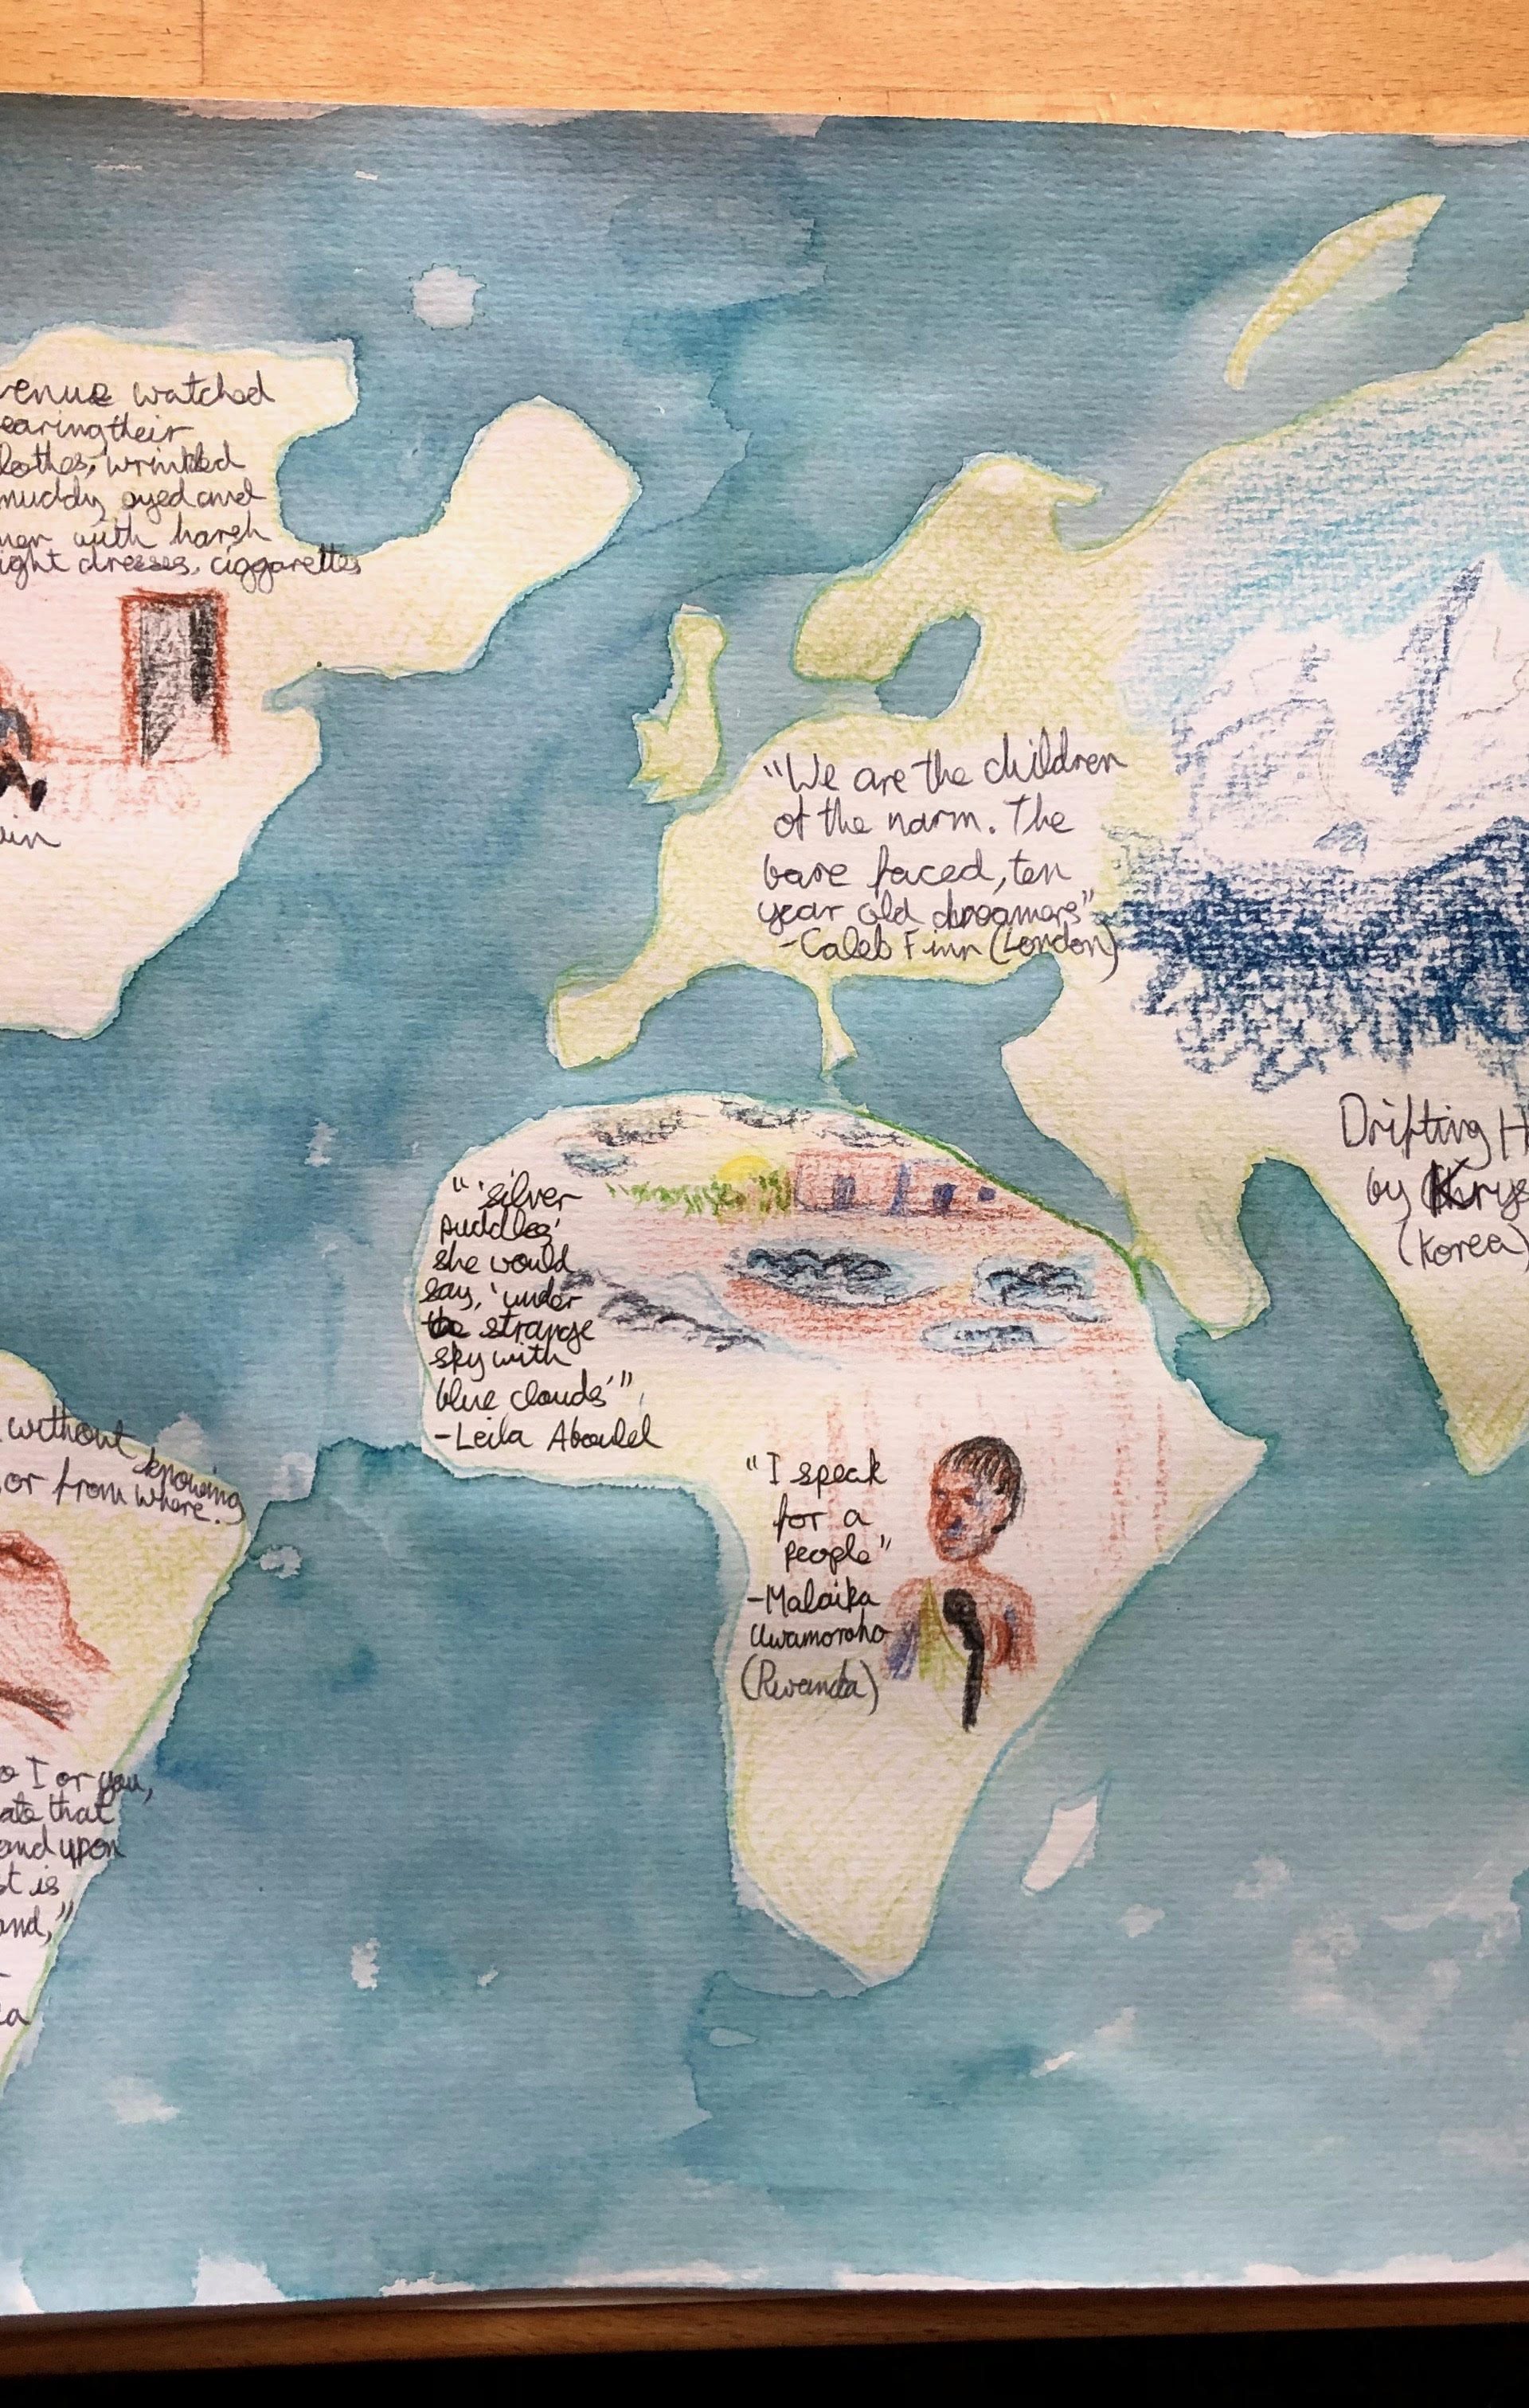 venue watched
earing their
lothes, wrinkled
muddy eyed and
with harsh
ight dresses, ciggarettes
win
"We are the children
of the narm. The
bare faced, ten
year old dreamers"
-Caleb Finn (London)
Drifting H
by Krys
(Korea)
"'silver
puddles'
she would
say, 'under
the strange
sky with
blue clouds'"
-Leila Aboulel
"I speak
for a
people"
-Malaika
Uwamoroho
(Rwanda)
without knowing
or from where.
o I or you,
ate that
and upon
st is
and,"